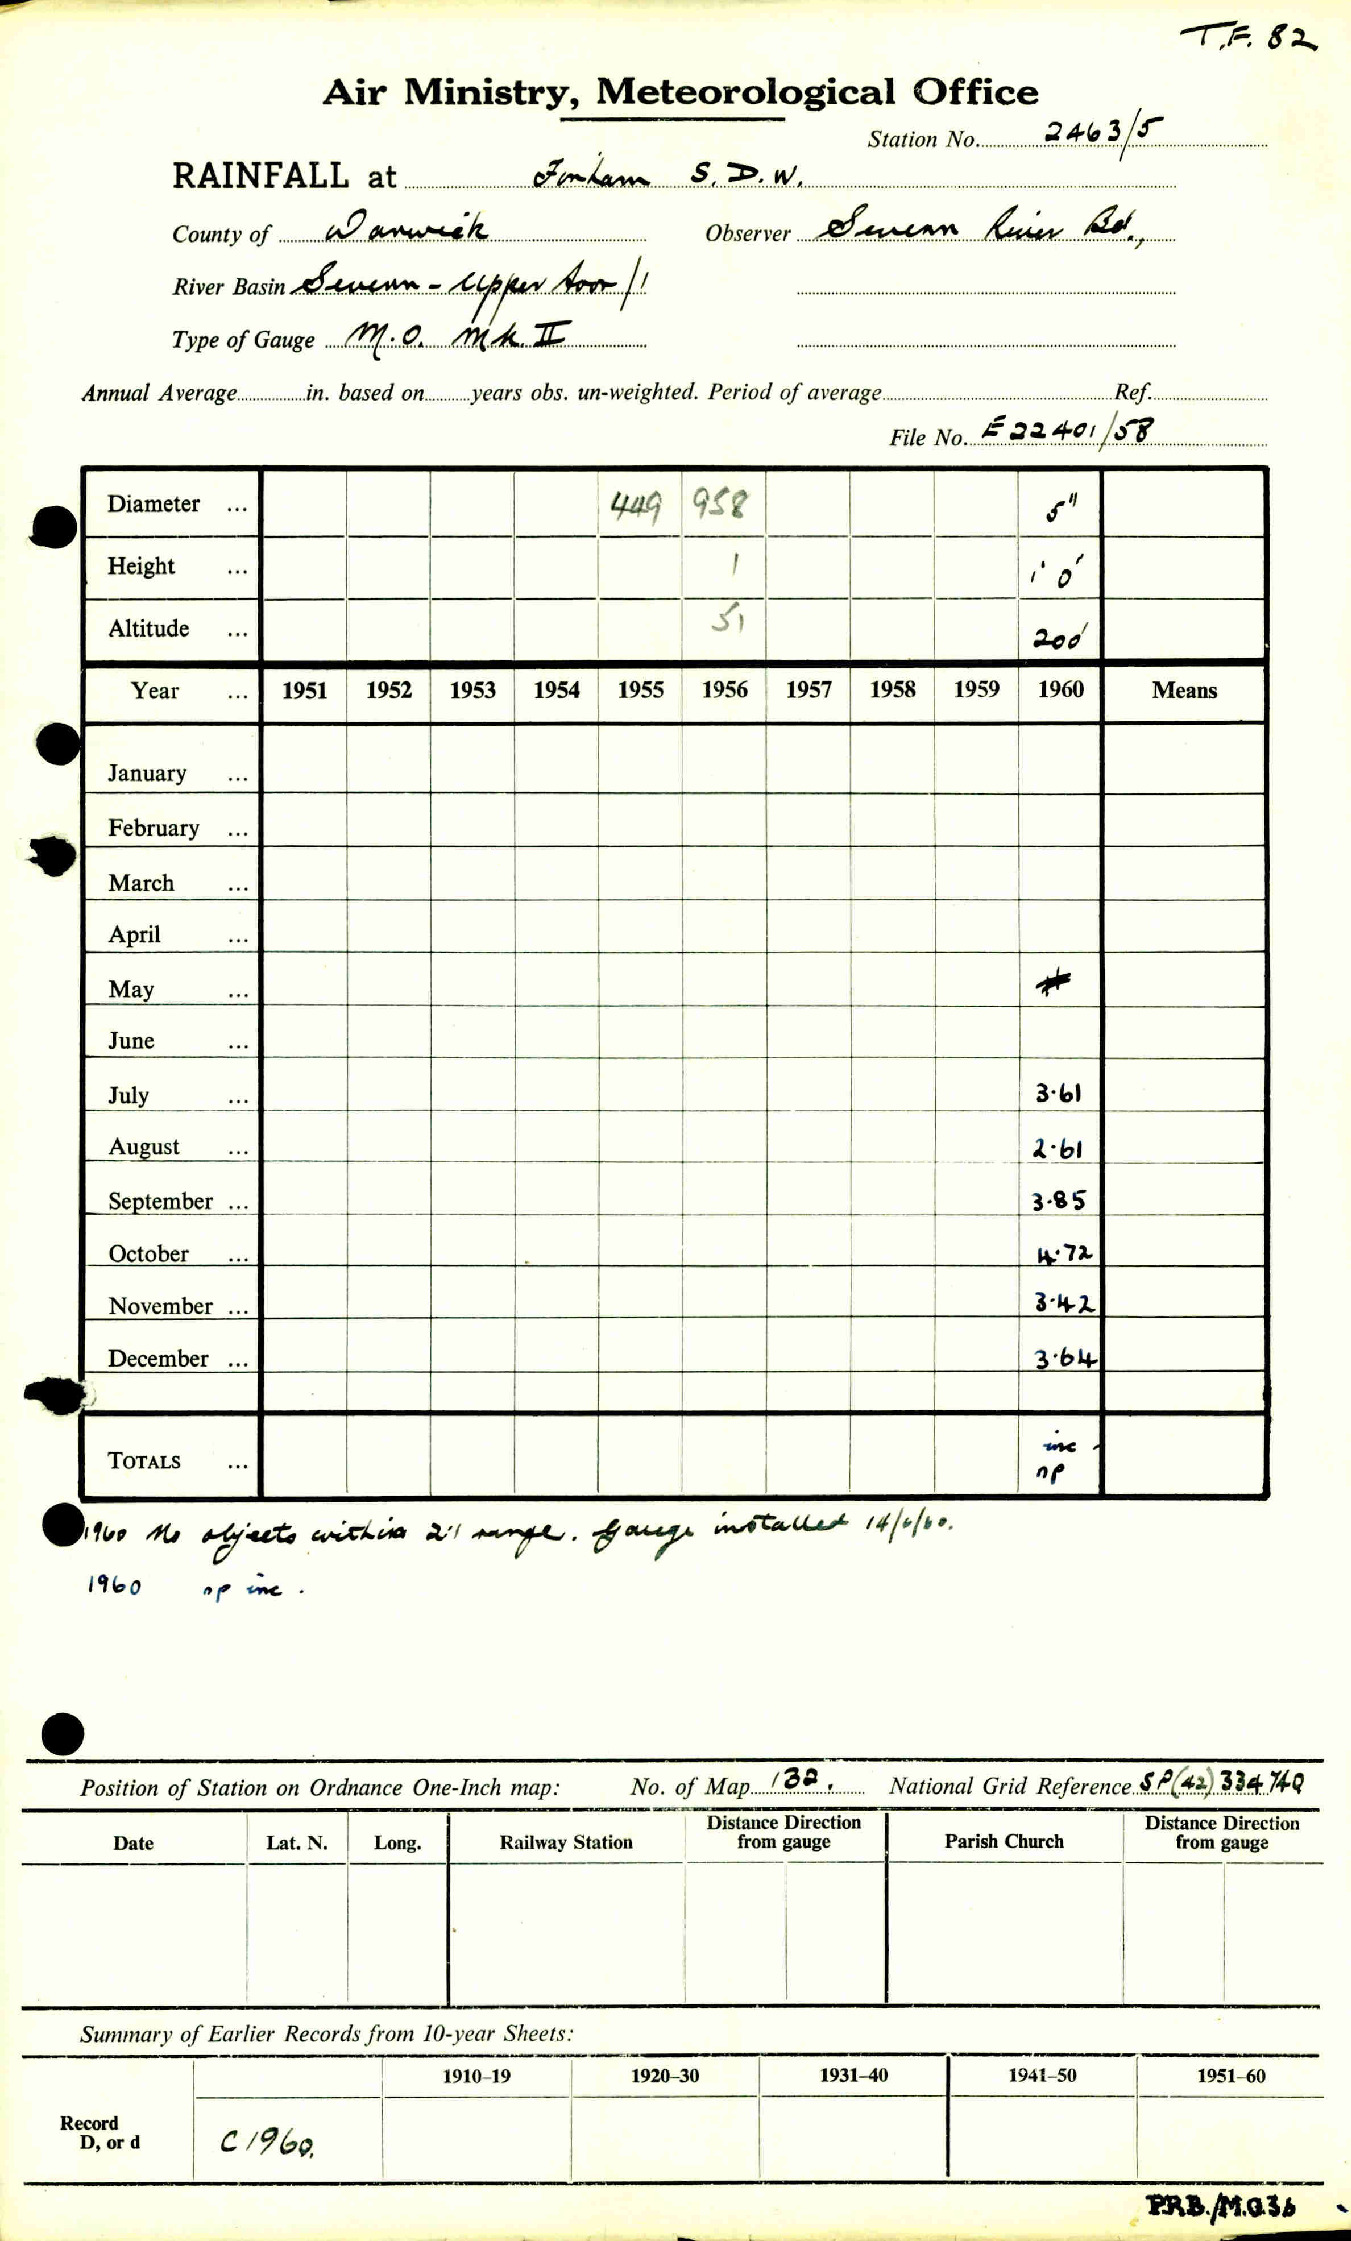 T.F. 82
Air Ministry, Meteorological Office
Station No. 2463/5
RAINFALL at Finham S.D.W.
County of Warwick Observer Severn River Bd.,
River Basin Severn - Upper Avon/1
Type of Gauge M.O. Mk. II
Annual Average in. based on years obs. un-weighted. Period of average Ref.
File No. E22401/58
Diameter ... 449 958 5"
Height ... 1 1' 0"
Altitude ... 51 200'
Year ... 1951 1952 1953 1954 1955 1956 1957 1958 1959 1960 Means
January ...
February ...
March ...
April ...
May ...
June ...
July ... 3.61
August ... 2.61
September ... 3.85
October ... 4.72
November ... 3.42
December ... 3.64
TOTALS ... inc
np
1960 No objects within 2:1 range. Gauge installed 14/6/60.
1960 np inc.
Position of Station on Ordnance One-Inch map: No. of Map 132. National Grid Reference SP(42) 334740
Date Lat. N. Long. Railway Station Distance Direction from gauge Parish Church Distance Direction from gauge
Summary of Earlier Records from 10-year Sheets:
1910–19 1920–30 1931–40 1941–50 1951–60
Record
D, or d C1960.
P.R.B./M.O.36